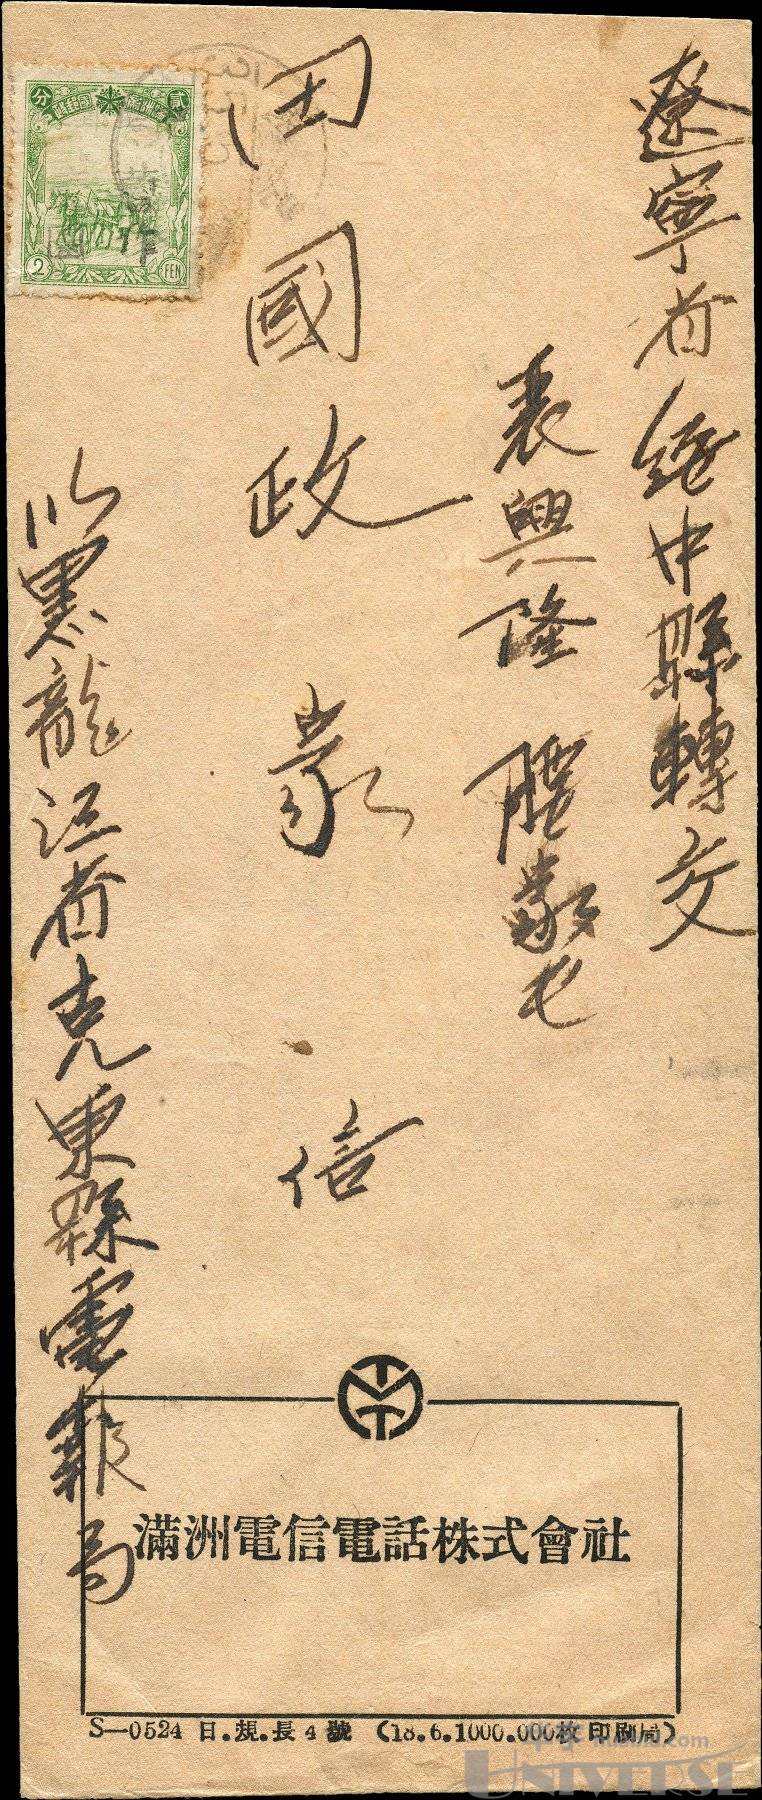 遼寧省綏中縣轉交
表興隆
田國政家信
黑龍江省克東縣電報局
貳
分
2
FEN
滿洲電信電話株式會社
S—0524 日.規.長4號 (18.6.1000.000枚印刷局)
UNIVERSE